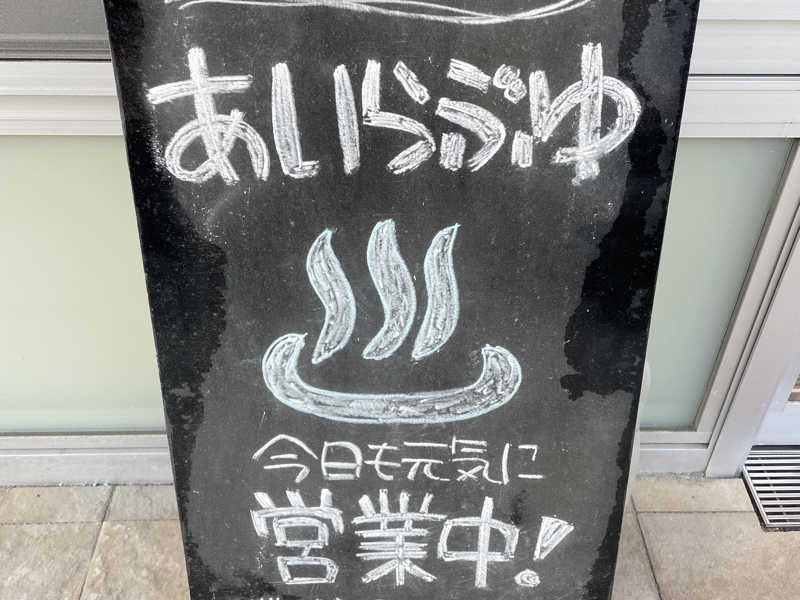 あいらぶゆ
今日も元気に
営業中!